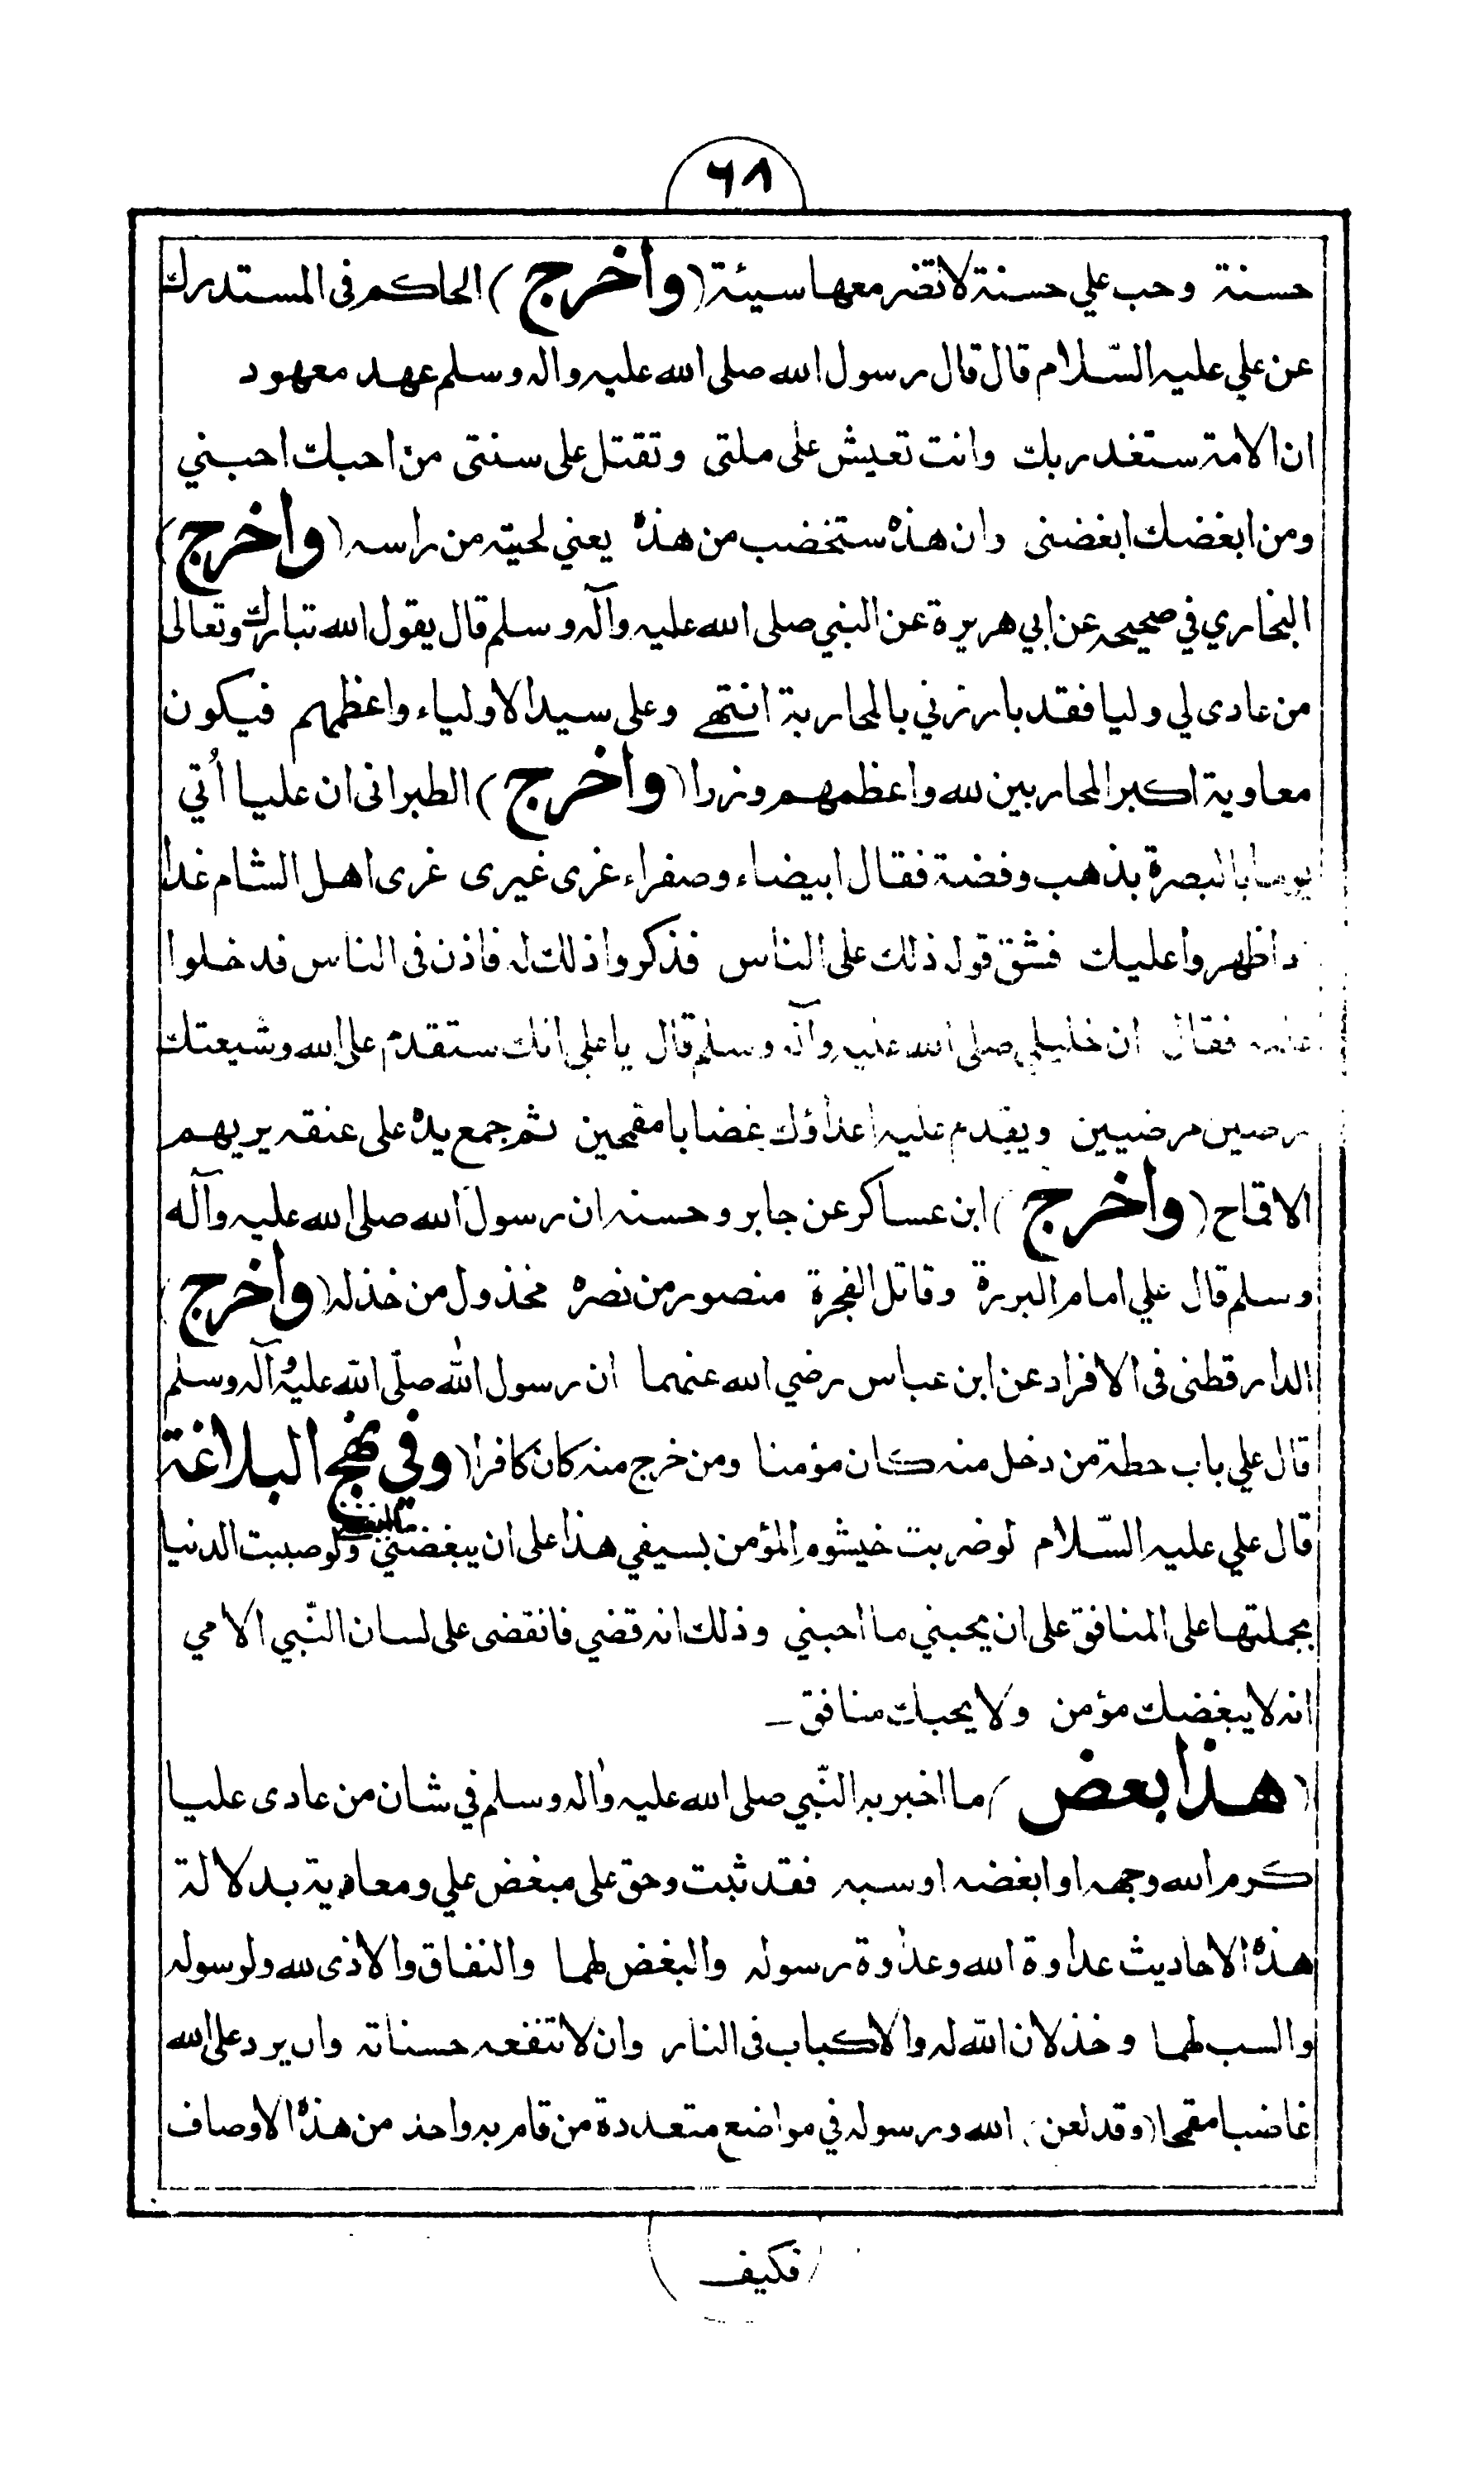 ٦٨
حسنة وحب علي حسنة لا تضر معها سيئة (واخرج) الحاكم فى المستدرك
عن علي عليه السّلام قال قال رسول الله صلى الله عليه واله وسلم عهد معهود
ان الامة ستغدر بك وانت تعيش على ملتى وتقتل على سنتى من احبك احبني
ومن ابغضك ابغضنى وان هذه ستخضب من هذه يعني لحيته من راسه (واخرج)
البخاري في صحيحه عن ابي هريرة عن النبي صلى الله عليه وآله وسلم قال يقول الله تبارك وتعالى
من عادى لي وليا فقد بارزني بالمحاربة انتهى وعلى سيد الاولياء واعظمهم فيكون
معاوية اكبر المحاربين لله واعظمهم وزرا (واخرج) الطبرانى ان عليا أتي
يوما بالبصرة بذهب وفضة فقال ابيضاء وصفراء غرى غيرى غرى اهل الشام غدا
اظهروا عليك فشق قوله ذلك على الناس فذكروا ذلك له فاذن فى الناس فدخلوا
عليه فقال ان خليلي صلى الله عليه وآله وسلم قال يا علي انك ستقدم على الله وشيعتك
راضين مرضيين ويقدم عليه اعداؤك غضابا مقمحين ثم جمع يده على عنقه يريهم
الاقماح (واخرج) ابن عساكر عن جابر وحسنه ان رسول الله صلى الله عليه وآله
وسلم قال علي امام البررة وقاتل الفجرة منصور من نصره مخذول من خذله (واخرج)
الدارقطنى فى الافراد عن ابن عباس رضي الله عنهما ان رسول الله صلّى الله عليه وآله وسلم
قال علي باب حطة من دخل منه كان مؤمنا ومن خرج منه كان كافرا (وفي نهج البلاغة
قال علي عليه السّلام لو ضربت خيشوم المؤمن بسيفي هذا على ان يبغضني ما ابغضني ولو صببت الدنيا
بجملتها على المنافق على ان يحبني ما احبني وذلك انه قضي فانقضى على لسان النّبي الامي
انه لا يبغضك مؤمن ولا يحبك منافق ـ
(هذا بعض) ما اخبر به النّبي صلى الله عليه واله وسلم في شان من عادى عليا
كرم الله وجهه او ابغضه او سبه فقد ثبت وحق على مبغض علي ومعادية بدلالة
هذه الاحاديث عداوة الله وعداوة رسوله والبغض لهما والنفاق والاذى لله ولرسوله
والسب لهما وخذلان الله له والاكباب فى النار وان لا تنفعه حسناته وان يرد على الله
غاضبا مقمحا (وقد لعن) الله ورسوله في مواضع متعددة من قام به واحد من هذه الاوصاف
فكيف